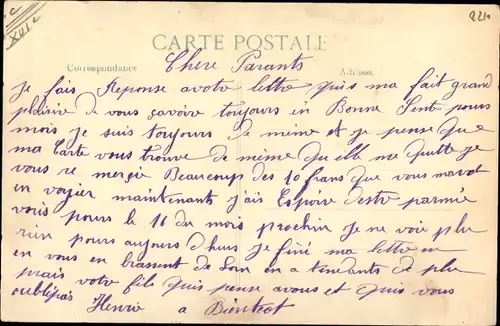 XVIe
221a
CARTE POSTALE
Correspondance
Adresse
Chere Parants
Je fais Reponse avotre lettre quis ma fait grand
plaisire de vous savoire toujours en Bonne Sente pours
mois je suis toujours de meme et je pense que
ma Carte vous trouve de même qu elle me quitte je
vous re mercie Beaucoup des 10 frans que vous mavot
en voyier maintenants jais Espoire destre parmie
vous pours le 16 du mois prochin Je ne voie plu
rien pours aujours d'huis je finé ma lettre en
en vous en brassent de Loin en a tendants de plu
prais votre fils quis pense avous et quis vous
oublipas Henri a Bientot